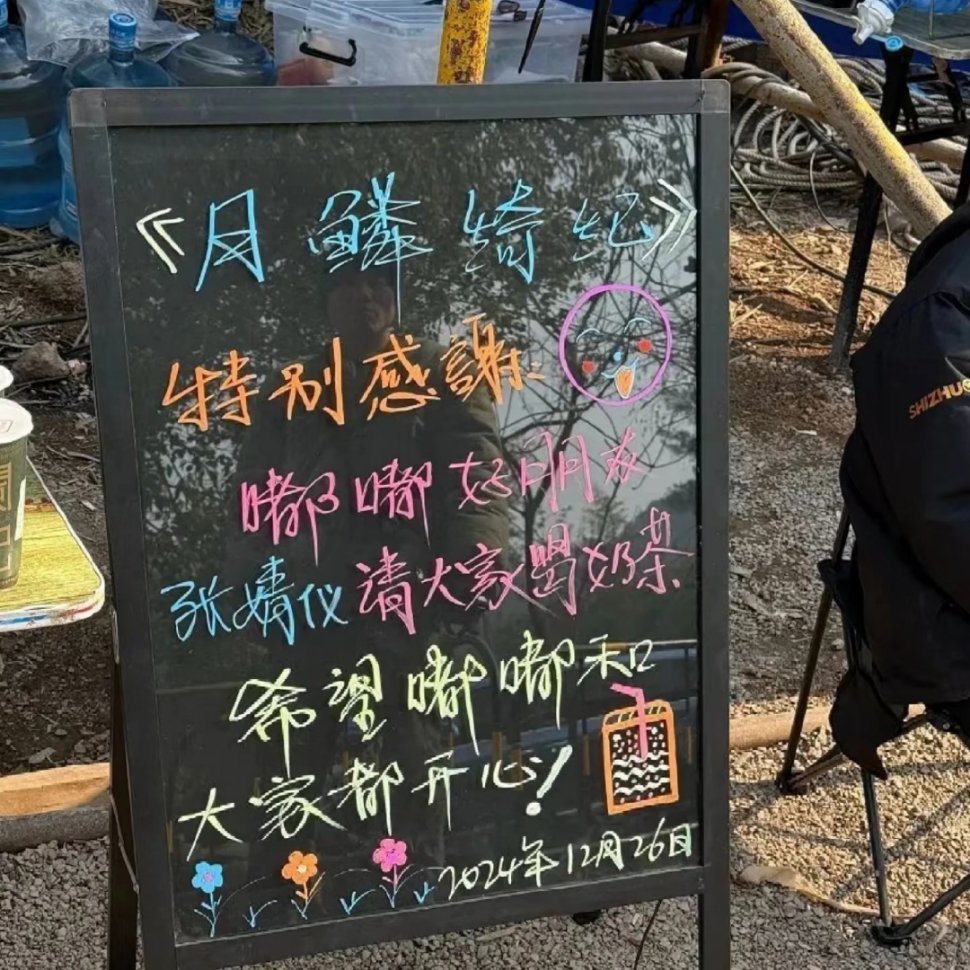 《月鳞绮纪》
特别感謝
嘟嘟好朋友
张婧仪请大家喝奶茶
希望嘟嘟和
大家都开心!
2024年12月26日